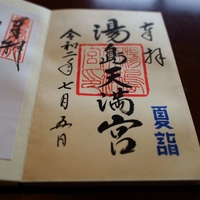 奉拝
湯島天満宮
令和二年七月五日
夏詣